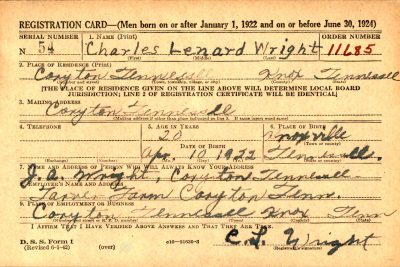 REGISTRATION CARD—(Men born on or after January 1, 1922 and on or before June 30, 1924)
SERIAL NUMBER 1. NAME (Print) ORDER NUMBER
N 54 Charles Lenard Wright 11685
(First) (Middle) (Last)
2. PLACE OF RESIDENCE (Print)
Coryton Tennessee Knox Tennessee
[THE PLACE OF RESIDENCE GIVEN ON THE LINE ABOVE WILL DETERMINE LOCAL BOARD
JURISDICTION; LINE 2 OF REGISTRATION CERTIFICATE WILL BE IDENTICAL]
3. MAILING ADDRESS
Coryton Tennessee
4. TELEPHONE 5. AGE IN YEARS 6. PLACE OF BIRTH
20 Knoxville
DATE OF BIRTH (Town or county)
Apr. 10 1922 Tennessee.
(Exchange) (Number) (Mo.) (Day) (Yr.) (State or country)
7. NAME AND ADDRESS OF PERSON WHO WILL ALWAYS KNOW YOUR ADDRESS
J. A. Wright, Coryton Tennessee
8. EMPLOYER'S NAME AND ADDRESS
Farm Coryton Tenn.
9. PLACE OF EMPLOYMENT OR BUSINESS
Coryton Tennessee Knox Tenn
I AFFIRM THAT I HAVE VERIFIED ABOVE ANSWERS AND THAT THEY ARE TRUE.
D. S. S. Form 1
(Revised 6-1-42) (over)
C. L. Wright